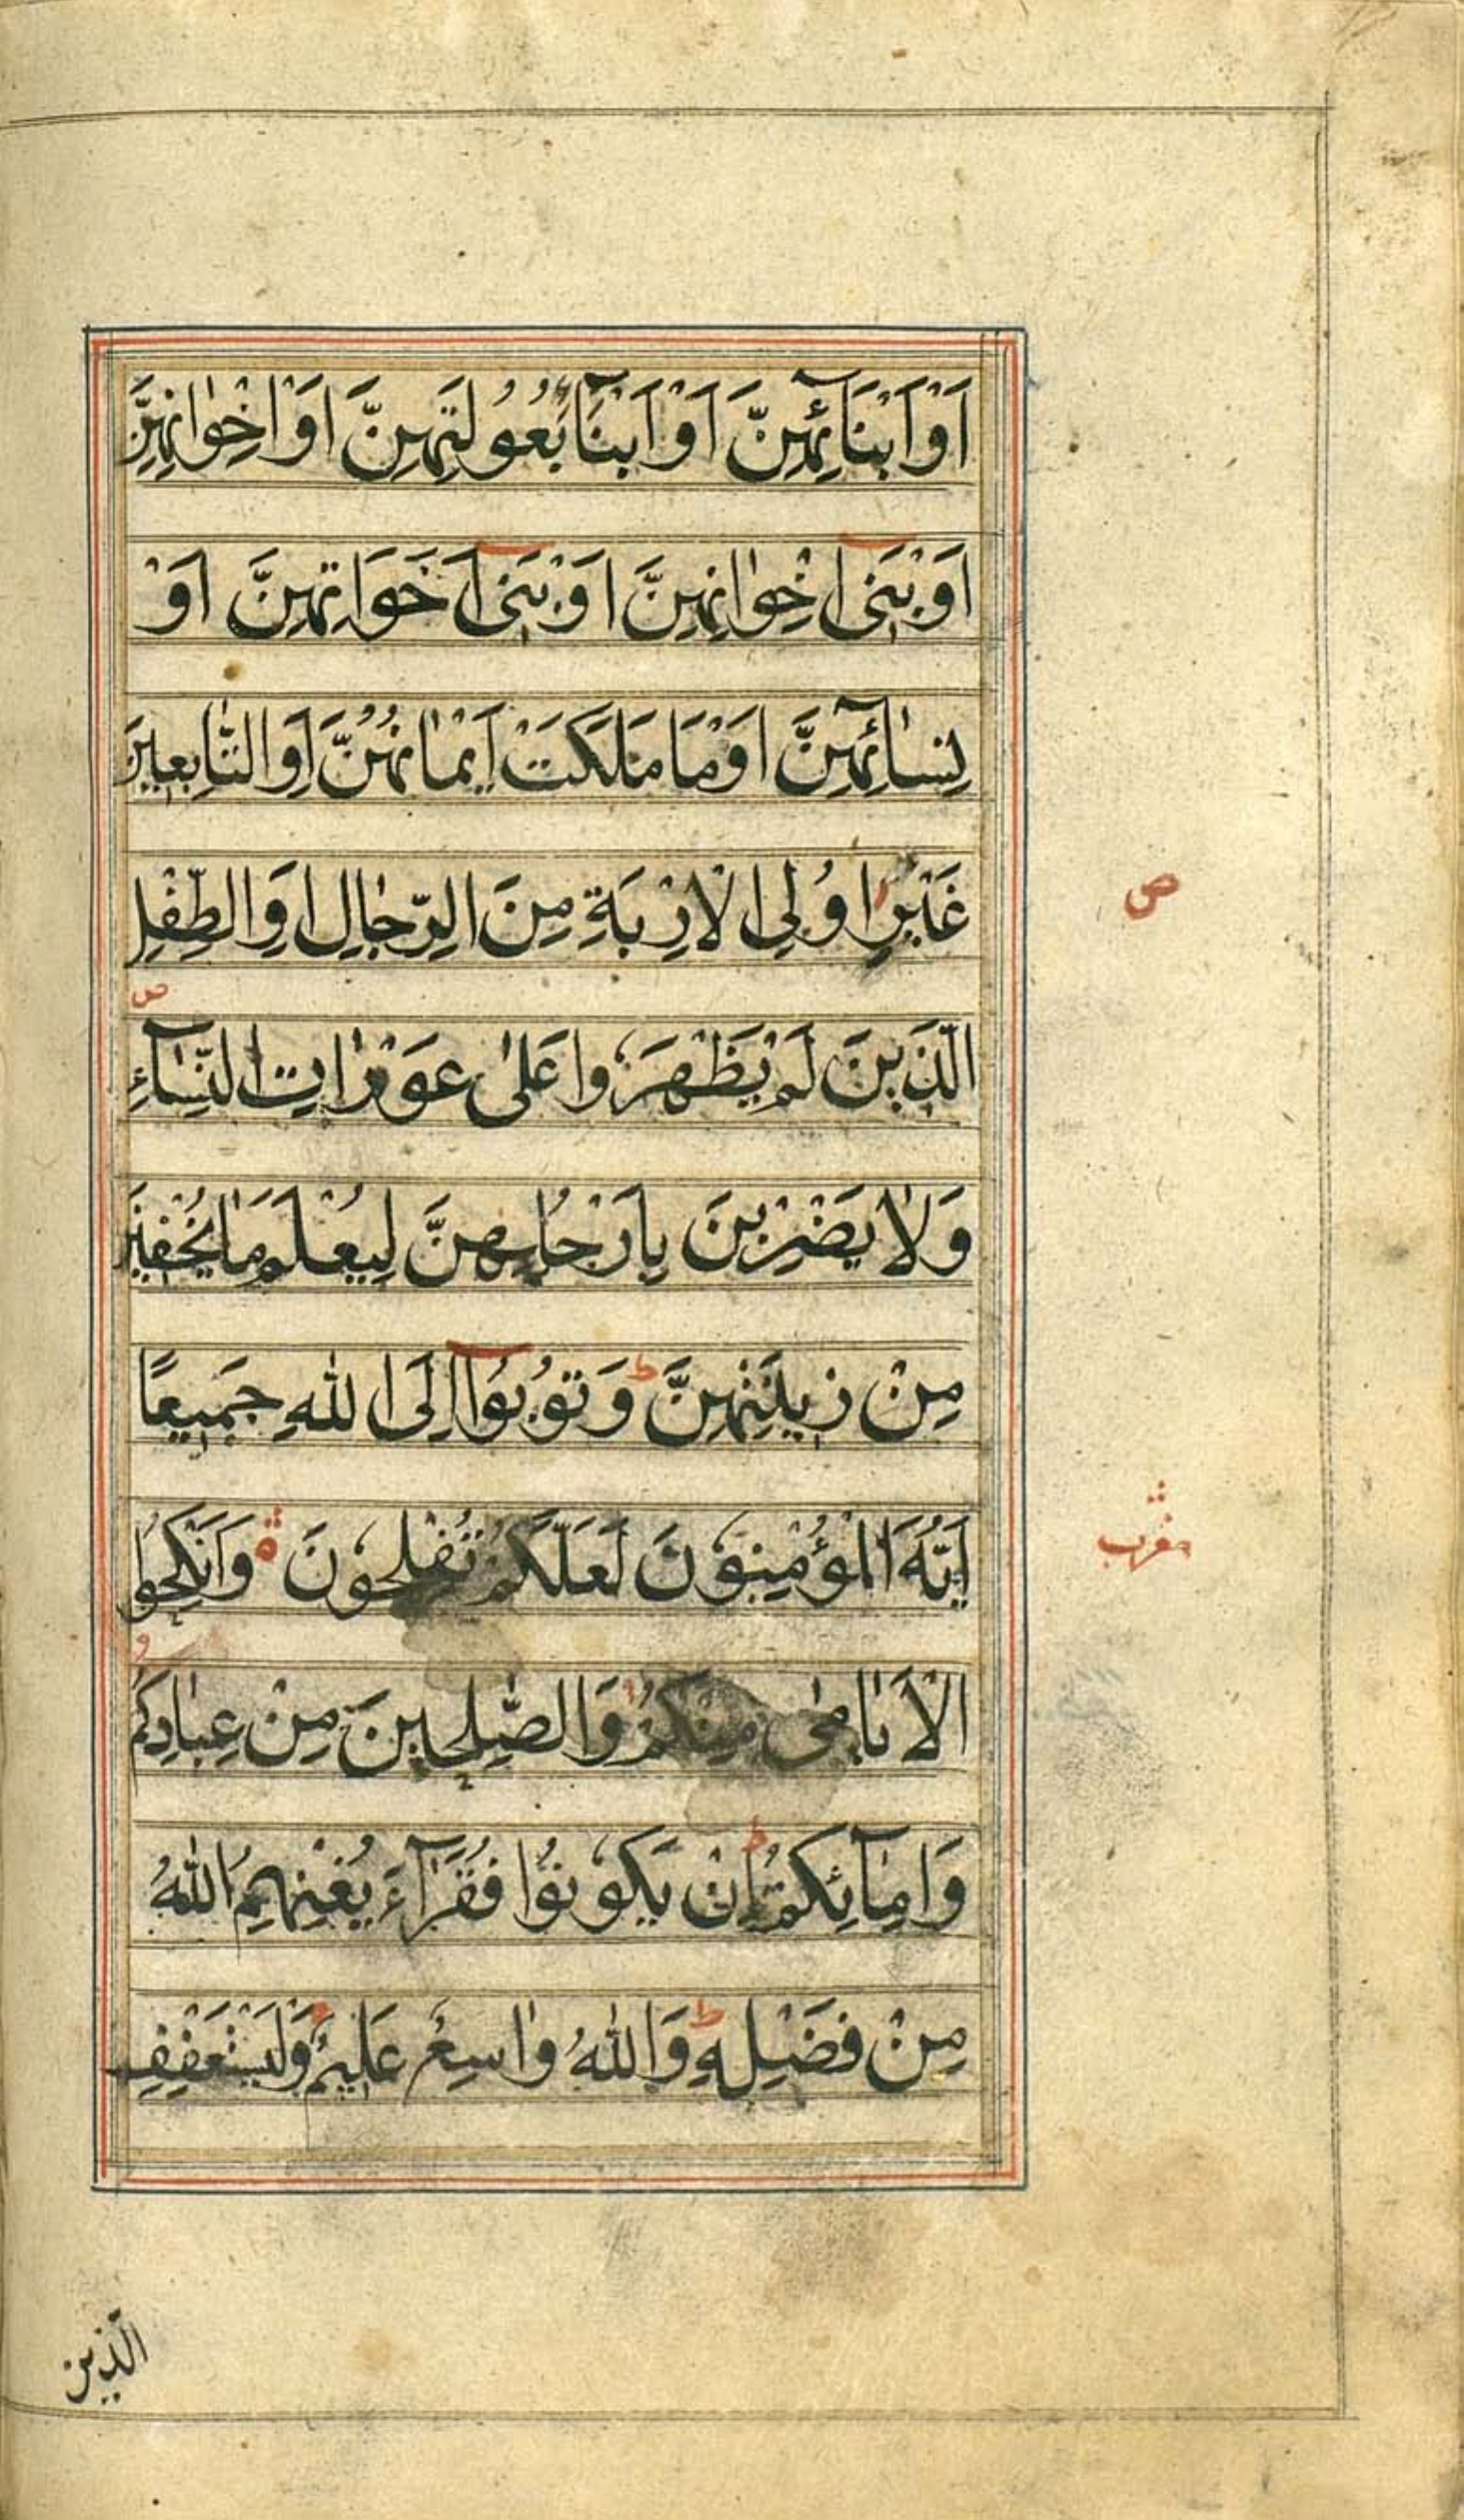 اَوْ اَبْنَآئِهِنَّ اَوْ اَبْنَآءِ بُعُولَتِهِنَّ اَوْ اِخْوٰانِهِنَّ
اَوْ بَنِىٓ اِخْوٰانِهِنَّ اَوْ بَنِىٓ اَخَوَاتِهِنَّ اَوْ
نِسٰآئِهِنَّ اَوْ مَا مَلَكَتْ اَيْمٰانُهُنَّ اَوِ التّٰابِعِينَ
غَيْرِ اُولِى الْاِرْبَةِ مِنَ الرِّجٰالِ اَوِ الطِّفْلِ
ص
ص
الَّذِينَ لَمْ يَظْهَرُوا عَلىٰ عَوْرٰاتِ النِّسٰآءِ
وَلٰا يَضْرِبْنَ بِاَرْجُلِهِنَّ لِيُعْلَمَ مٰا يُخْفِينَ
مِنْ زِينَتِهِنَّ ط وَتُوبُوٓا اِلَى اللّٰهِ جَمِيعًا
اَيُّهَ الْمُؤْمِنُونَ لَعَلَّكُمْ تُفْلِحُونَ ة وَاَنْكِحُوا
مغرب
الْاَيٰامىٰ مِنْكُمْ وَالصّٰلِحِينَ مِنْ عِبٰادِكُمْ
وَاِمٰآئِكُمْ ط اِنْ يَكُونُوا فُقَرٰآءَ يُغْنِهِمُ اللّٰهُ
مِنْ فَضْلِهِ ط وَاللّٰهُ وٰاسِعٌ عَلِيمٌ وَلْيَسْتَعْفِفِ
الَّذِين